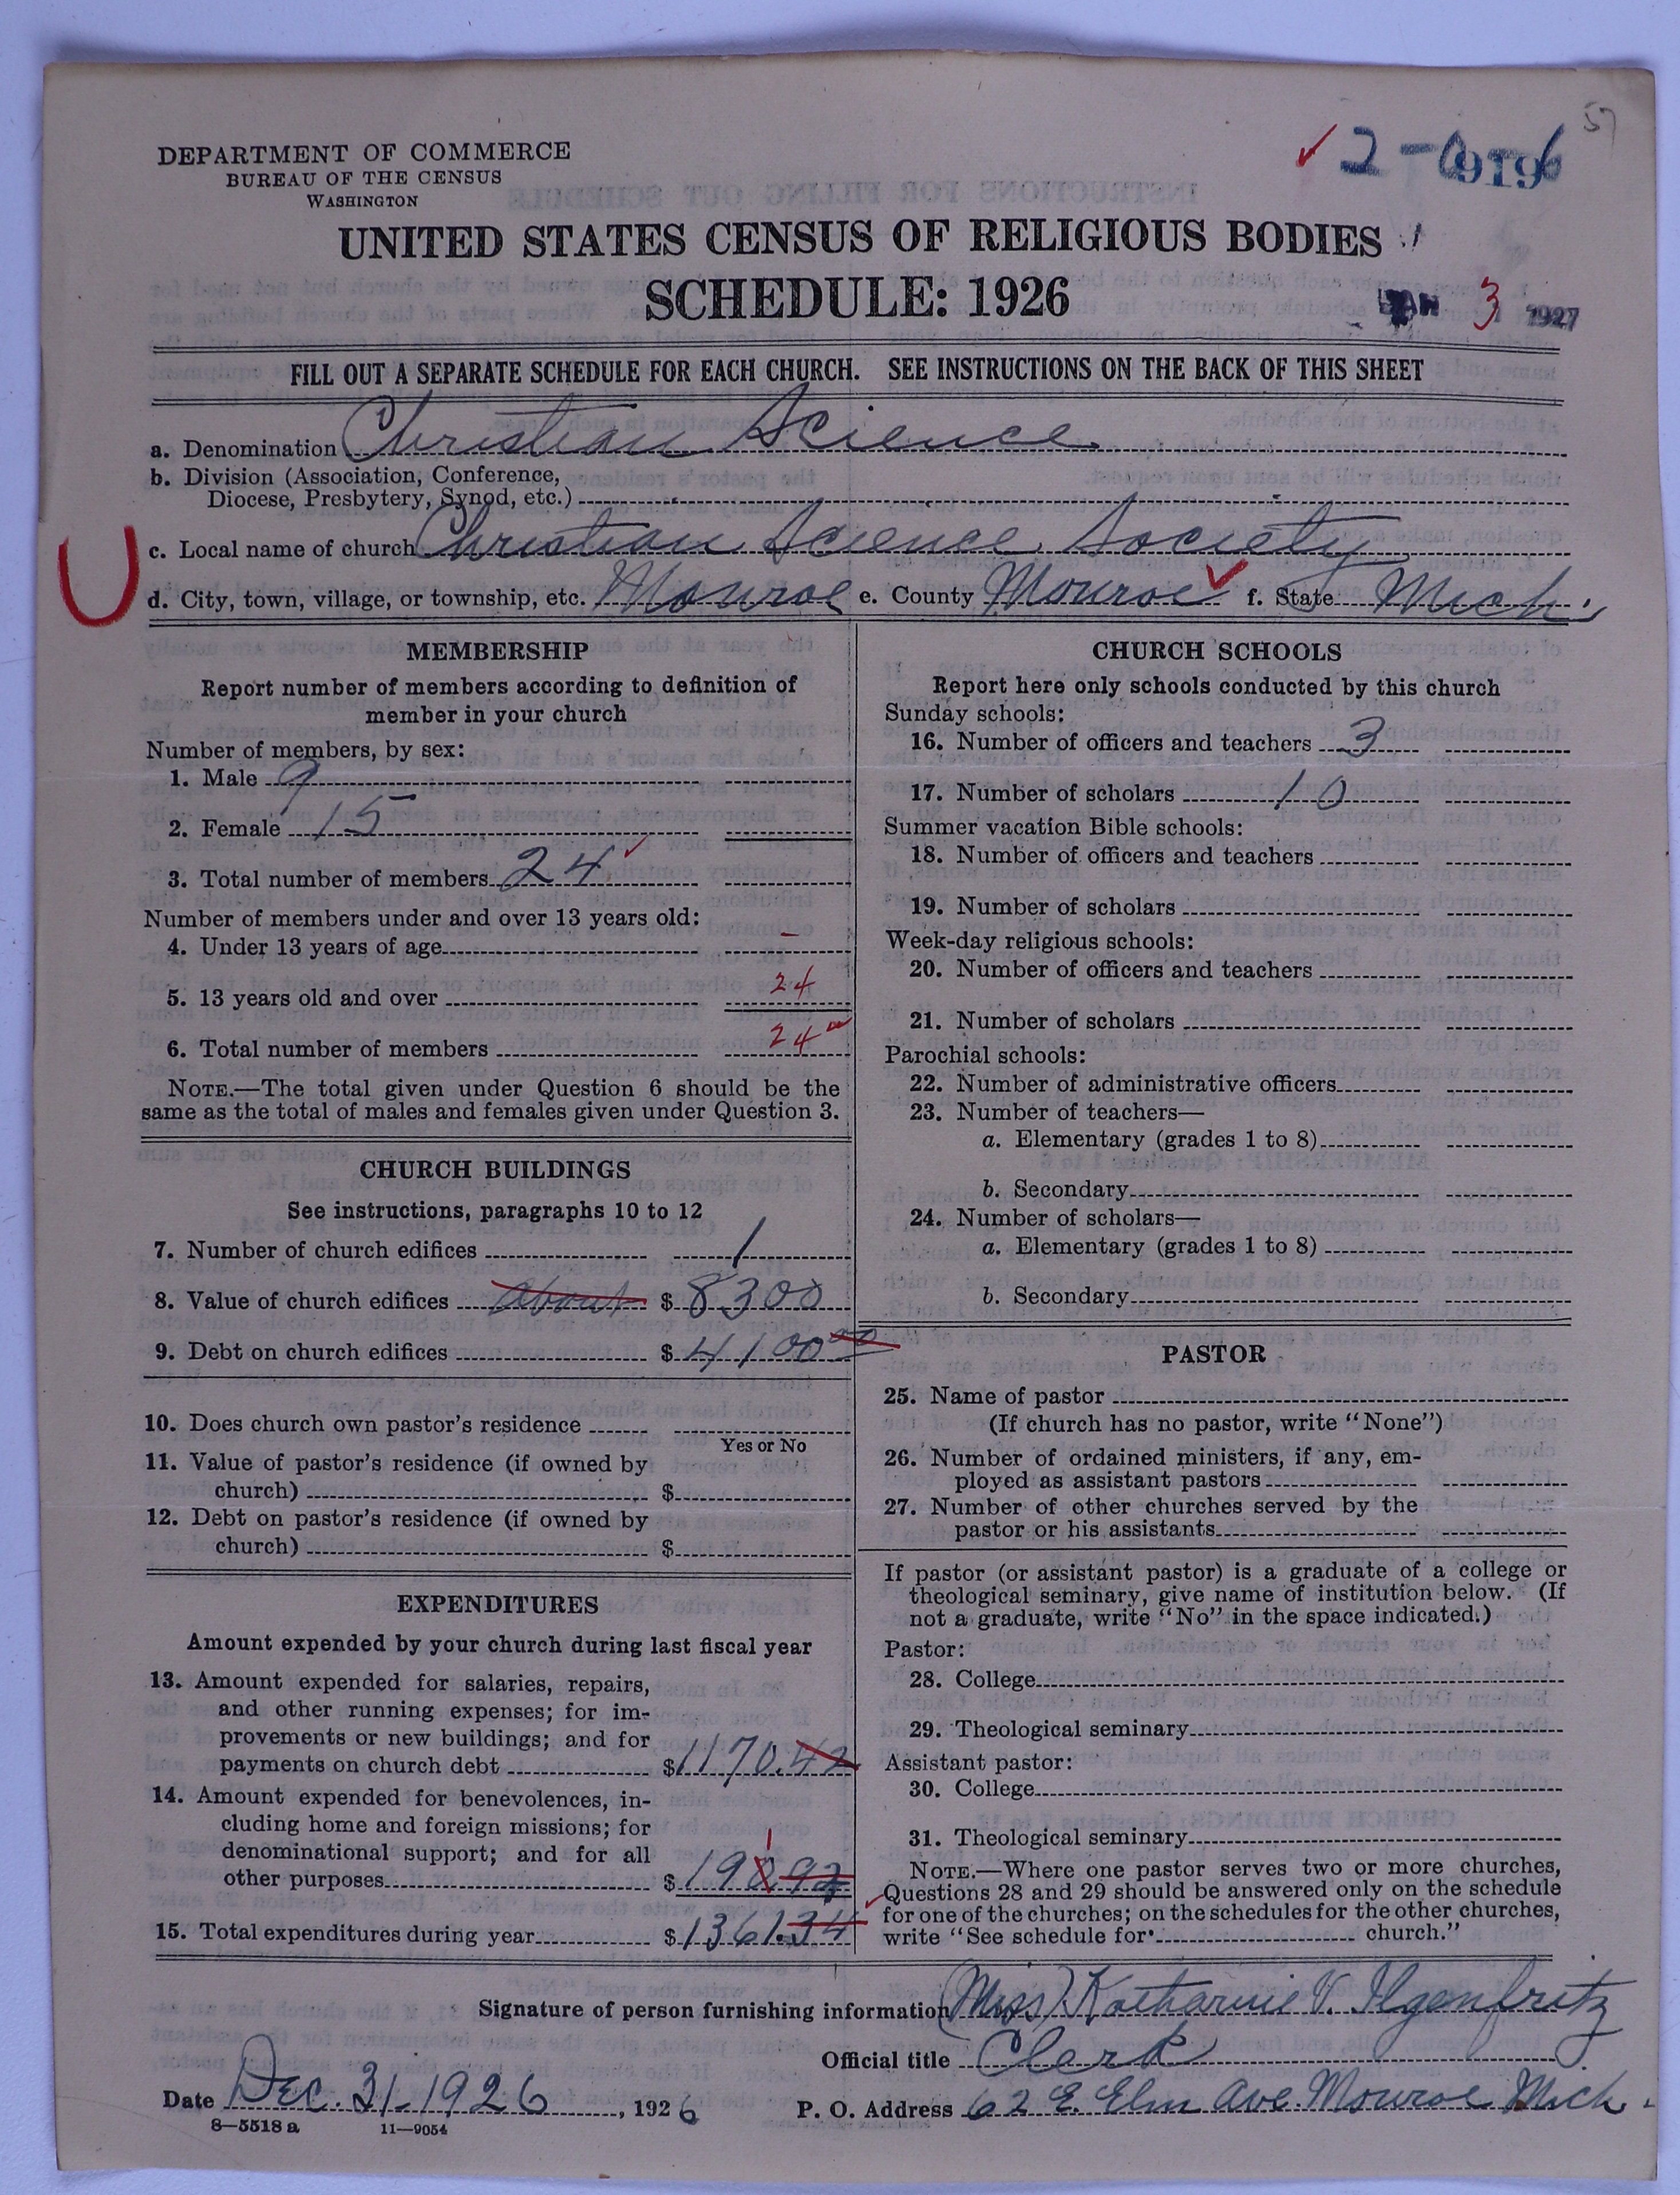 57
DEPARTMENT OF COMMERCE
BUREAU OF THE CENSUS
WASHINGTON
UNITED STATES CENSUS OF RELIGIOUS BODIES
SCHEDULE: 1926
JAN 3 1927
FILL OUT A SEPARATE SCHEDULE FOR EACH CHURCH. SEE INSTRUCTIONS ON THE BACK OF THIS SHEET
a. Denomination Christian Science
b. Division (Association, Conference,
Diocese, Presbytery, Synod, etc.)
c. Local name of church Christian Science Society
d. City, town, village, or township, etc. Monroe e. County Monroe f. State Mich.
MEMBERSHIP
Report number of members according to definition of
member in your church
Number of members, by sex:
1. Male 9
2. Female 15
3. Total number of members 24
Number of members under and over 13 years old:
4. Under 13 years of age –
5. 13 years old and over 24
6. Total number of members 24
NOTE.—The total given under Question 6 should be the
same as the total of males and females given under Question 3.
CHURCH BUILDINGS
See instructions, paragraphs 10 to 12
7. Number of church edifices 1
8. Value of church edifices about $ 8300
9. Debt on church edifices $ 4100 00
10. Does church own pastor's residence
Yes or No
11. Value of pastor's residence (if owned by
church) $
12. Debt on pastor's residence (if owned by
church) $
EXPENDITURES
Amount expended by your church during last fiscal year
13. Amount expended for salaries, repairs,
and other running expenses; for im-
provements or new buildings; and for
payments on church debt $ 1170.42
14. Amount expended for benevolences, in-
cluding home and foreign missions; for
denominational support; and for all
1
other purposes $ 190.92
15. Total expenditures during year $ 1361.34
CHURCH SCHOOLS
Report here only schools conducted by this church
Sunday schools:
16. Number of officers and teachers 3
17. Number of scholars 10
Summer vacation Bible schools:
18. Number of officers and teachers
19. Number of scholars
Week-day religious schools:
20. Number of officers and teachers
21. Number of scholars
Parochial schools:
22. Number of administrative officers
23. Number of teachers—
a. Elementary (grades 1 to 8)
b. Secondary
24. Number of scholars—
a. Elementary (grades 1 to 8)
b. Secondary
PASTOR
25. Name of pastor
(If church has no pastor, write "None")
26. Number of ordained ministers, if any, em-
ployed as assistant pastors
27. Number of other churches served by the
pastor or his assistants
If pastor (or assistant pastor) is a graduate of a college or
theological seminary, give name of institution below. (If
not a graduate, write "No" in the space indicated.)
Pastor:
28. College
29. Theological seminary
Assistant pastor:
30. College
31. Theological seminary
NOTE.—Where one pastor serves two or more churches,
Questions 28 and 29 should be answered only on the schedule
for one of the churches; on the schedules for the other churches,
write "See schedule for church."
Signature of person furnishing information (Miss) Katharine V. Ilgenfritz
Official title Clerk
Date Dec. 31, 1926, 1926 P. O. Address 62 E. Elm Ave. Monroe Mich.
8—5518 a 11—9054